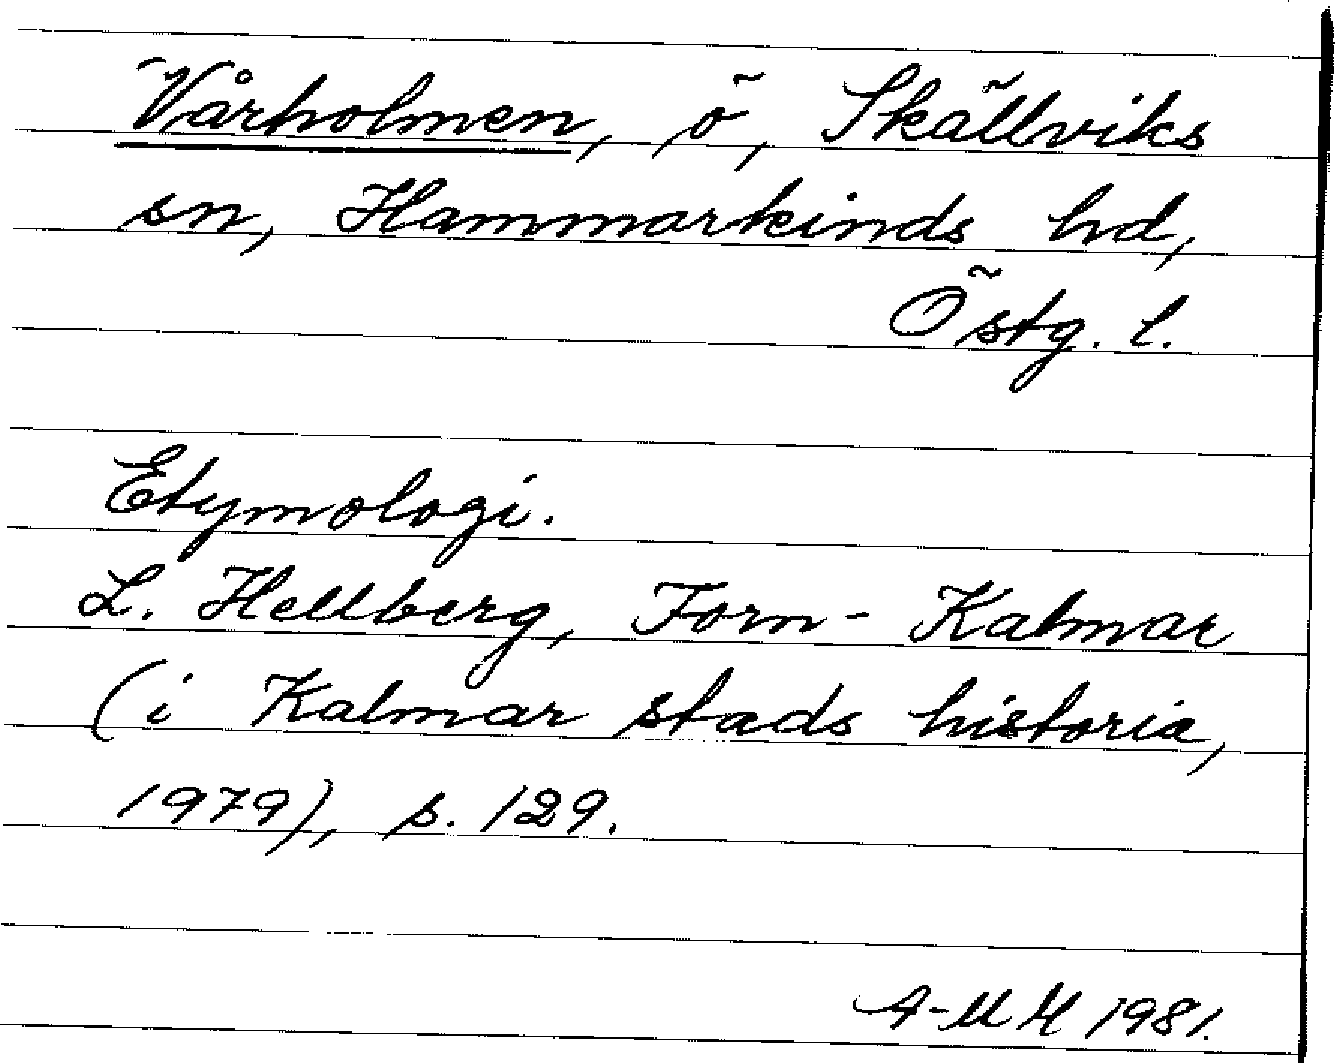 Vårholmen, ö, Skällviks
sn, Hammarkinds hd,
Östg. l.
Etymologi.
L. Hellberg, Forn-Kalmar
(i Kalmar stads historia,
1979), s. 129.
A-M H 1981.